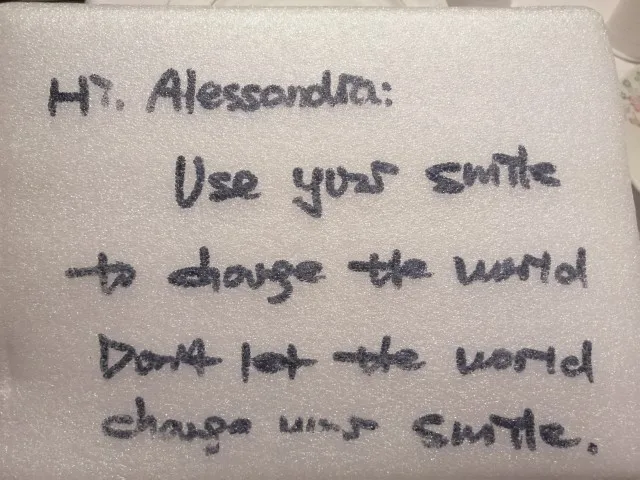 Hi. Alessandra:
Use your smile
to change the world
Don't let the world
change your smile.